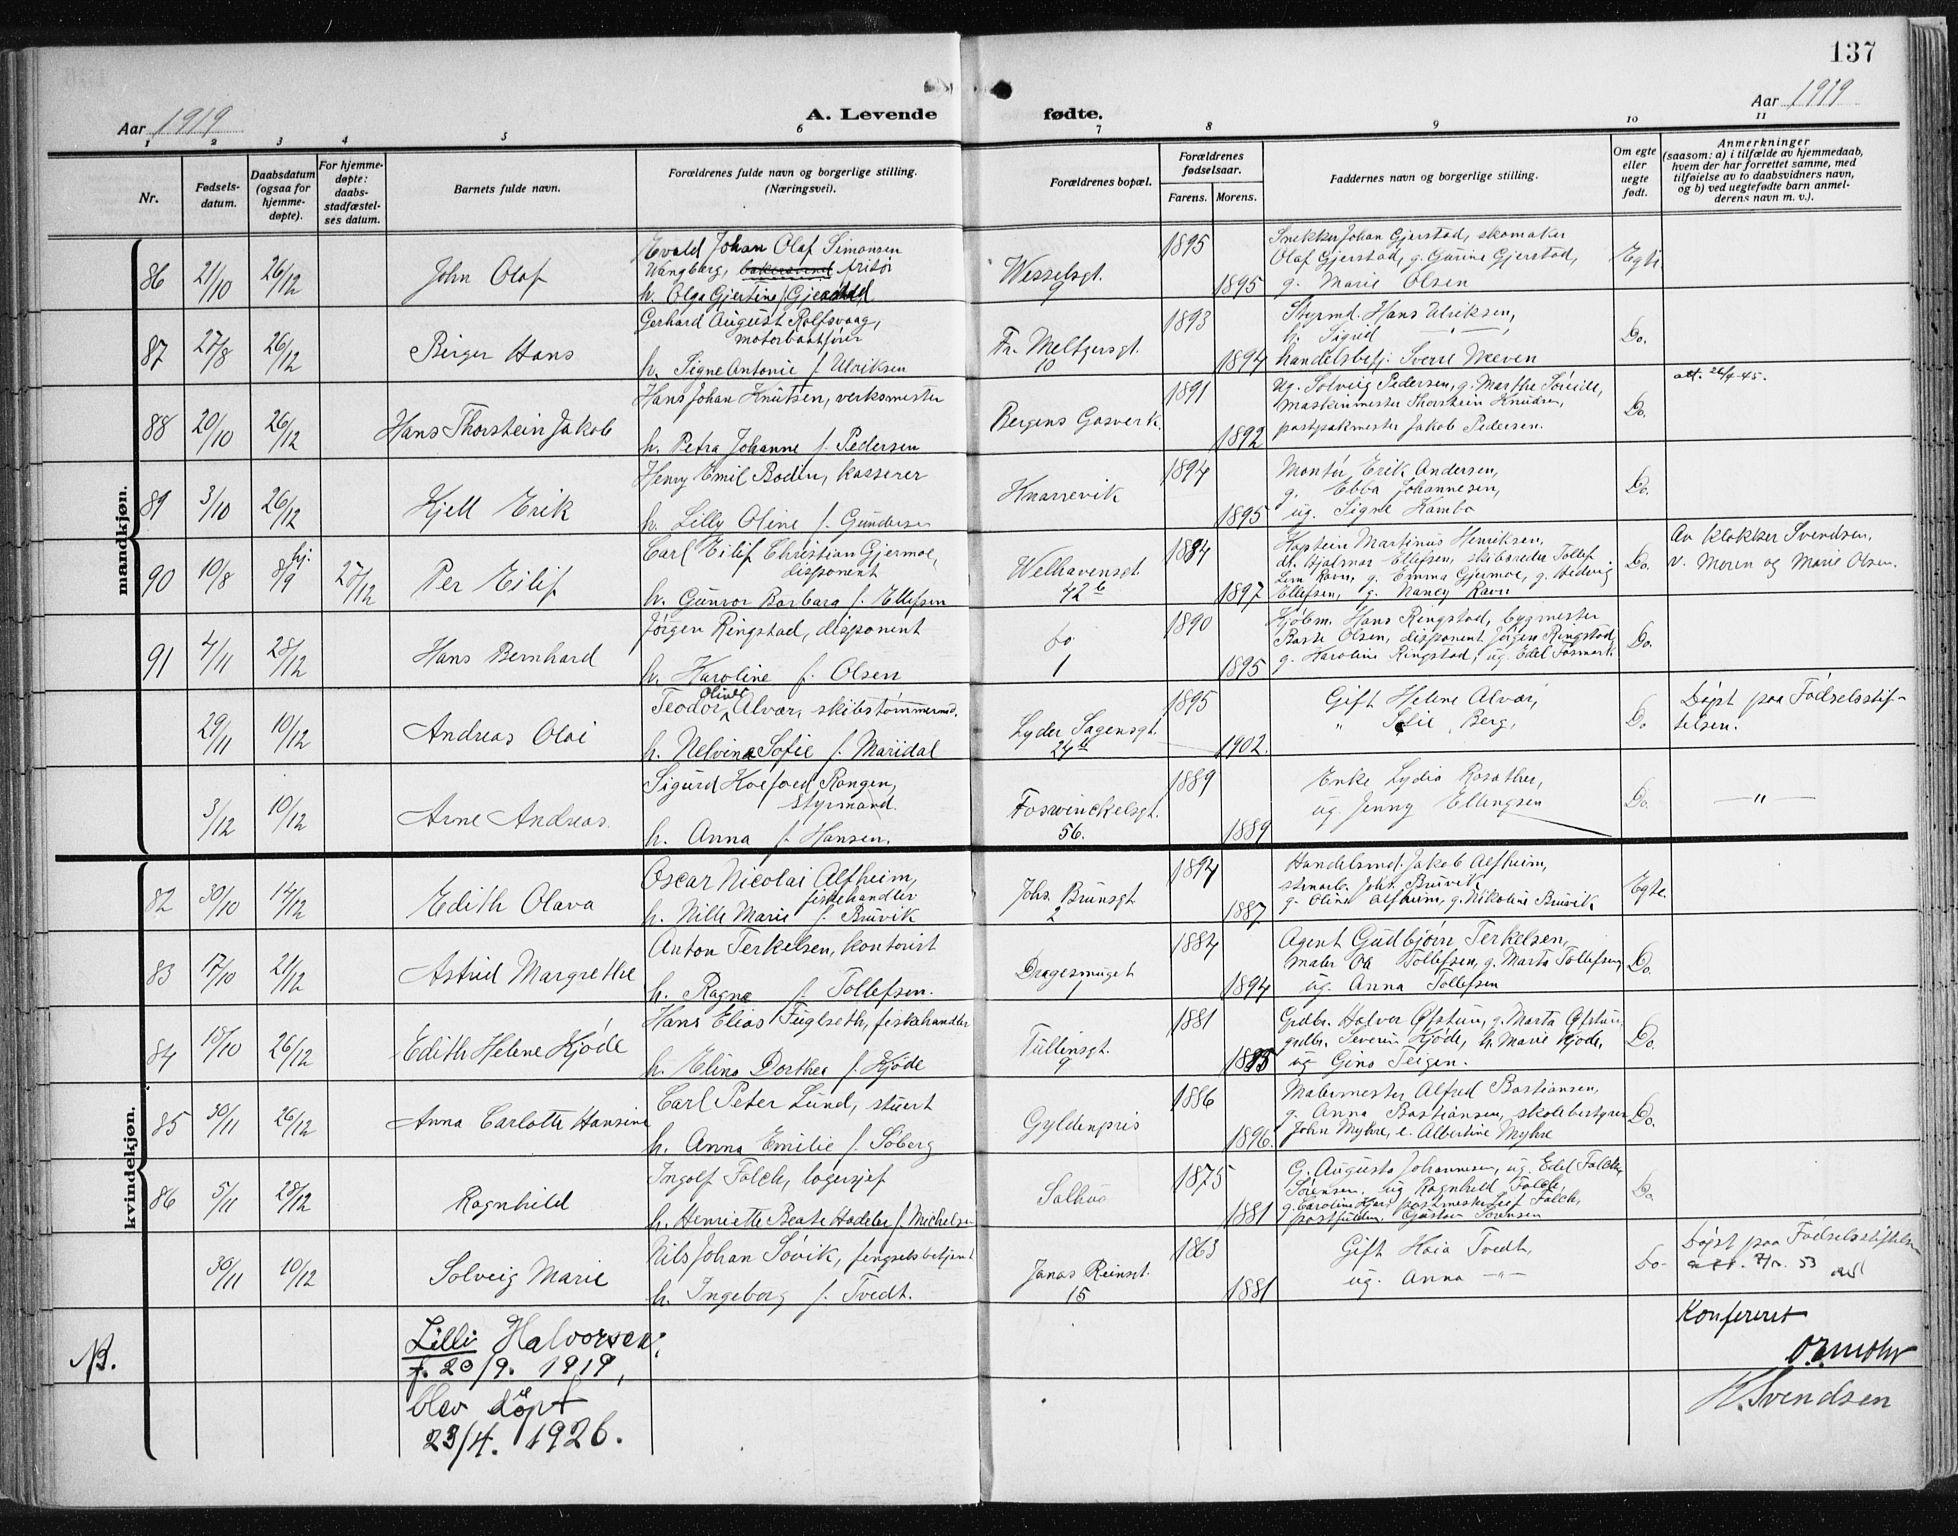 137
Aar 1919
A. Levende fødte.
Aar 1919
1 2 3 4 5 6 7 8 9 10 11
Nr.
Fødsels-
datum.
Daabsdatum
(ogsaa for
hjemme-
døpte).
For hjemme-
døpte:
daabs-
stadfæstel-
ses datum.
Barnets fulde navn.
Forældrenes fulde navn og borgerlige stilling.
(Næringsvei).
Forældrenes bopæl.
Forældrenes
fødselsaar.
Farens. Morens.
Faddernes navn og borgerlige stilling.
Om egte
eller
uegte
født.
Anmerkninger
(saasom: a) i tilfælde av hjemmedaab,
hvem der har forrettet samme, med
tilføielse av to daabsvidners navn,
og b) ved uegtefødte barn anmel-
derens navn m. v.).
mandkjøn.
86 21/10 26/12 John Olaf
Evald Johan Olaf Simonsen
Wangberg,
h. Olga Gjertine f. Gjerstad
Wesselsgt. 9
1895 1895
Snekker Johan Gjerstad, skomaker
Olaf Gjerstad, g. Garina Gjerstad,
g. Marie Olsen
Egte
87 27/8 26/12 Birger Hans
Gerhard August Rolfsvaag,
motorbaatfører
h. Signe Antonie f. Ulriksen
Fr. Meltzersgt. 10
1893 1894
Styrmd. Hans Ulriksen,
h. Sigrid — " —
handelsbetj. Sverre Næven
Do.
88 20/10 26/12 Hans Thorstein Jakob
Hans Johan Knutsen, verksmester
h. Petra Johanne f. Pedersen
Bergens Gasverk.
1891 1892
Ug. Solveig Pedersen, g. Marthe Søreide,
Maskinmester Thorstein Knudsen,
postpakmester Jakob Pedersen.
Do.
att. 26/4-45.
89 3/10 26/12 Kjell Erik
Henry Emil Boden, kasserer
h. Lilly Oline f. Gundersen
Knarrevik
1894 1895
Montør Erik Andersen,
g. Ebba Johannesen,
ug. Signe Kambo
Do.
90 10/8 hj. 8/9 27/12 Per Eilif
Carl Eilif Christian Gjermoe,
disponent
h. Gunvor Barbara f. Ellefsen
Welhavensgt. 42 b
1884 1897
Kaptein Martinus Henriksen,
do. Hjalmar Ellefsen, skibsreder Tollef
Ravn, g. Emma Gjermoe, g. Hedvig
Ellefsen, g. Nancy Ravn
Do.
Av klokker Svendsen,
v. Moren og Marie Olsen.
91 4/11 28/12 Hans Bernhard
Jørgen Ringstad, disponent
h. Karoline f. Olsen
do 1
1890 1895
Kjøbm. Hans Ringstad, bygmester
Olsen, disponent Jørgen Ringstad,
g. Karoline Ringstad, ug. Edel Fosmark
Do.
29/11 10/12 Andreas Olai
Teodor Oliver Alvær, skibstømmermd.
h. Nelvina Sofie f. Maridal
Lyder Sagensgt. 24
1895 1902
Gift Helene Alvær,
" Berg,
Do
Døpt paa Fødselsstif-
telsen.
3/12 10/12 Arne Andreas.
Sigurd Koefoed Rongen,
styrmand.
h. Anna f. Hansen.
Fosswinckelsgt. 56.
1889 1889
Enke Lydia Rosather,
ug. Jenny Ellingsen
Do.
— " —
kvindekjøn.
82 30/10 14/12 Edith Olava
Oscar Nicolai Alfheim,
fiskehandler
h. Nille Marie f. Bruvik
Johs. Brunsgt. 2
1894 1887
Handelsmd. Jakob Alfheim,
Joh. Bruvik
g. Oline Alfheim, g. Nikoline Bruvik
Egte.
83 17/10 21/12 Astrid Margrethe
Anton Terkelsen, kontorist
h. Ragna f. Tollefsen.
Dragesmuget 1
1884 1894
Agent Gudbjørn Terkelsen,
maler Tollefsen, g. Marta Tollefsen,
ug. Anna Tollefsen
Do.
84 18/10 26/12 Edith Helene Kjøde
Hans Elias Fuglseth, fiskehandler
h. Elina Dorthea f. Kjøde
Tullinsgt. 9
1881 1885
Grdbr. Halver Øfstun, g. Marta Øfstun,
grdbr. Severin Kjøde, h. Marie Kjøde,
ug Gina Teigen.
Do.
85 30/11 26/12 Anna Carlotte Hansine
Carl Peter Lund, stuert
h. Anna Emilie f. Søberg
Gyldenpris
1886 1896.
Malermester Alfred Bastiansen,
g. Anna Bastiansen, skolebestyrer
John Myhre, e. Albertine Myhre
Do.
86 5/11 28/12 Ragnhild
Ingolf Falch, lagersjef
h. Henriette Beate Hadeler f. Michelsen
Salhus
1875 1881
G. Augusta Johannesen, ug. Edel Falch,
Sørensen, ug Ragnhild Falch,
g. Caroline postmester Leif Falch,
Gustav Sørensen
Do
30/11 10/12 Solveig Marie
Nils Johan Søvik, fengselsbetjent
h. Ingeborg f. Tvedt.
Jonas Reinsgt. 15
1863 1881
Gift Kaia Tvedt,
ug. Anna — " —
Do-
Døpt paa Fødselsstiftelsen
att. 53
NB.
Lilli Halvorsen,
f. 20/9. 1919,
blev døpt
23/4. 1926.
Konfereret
K. Svendsen